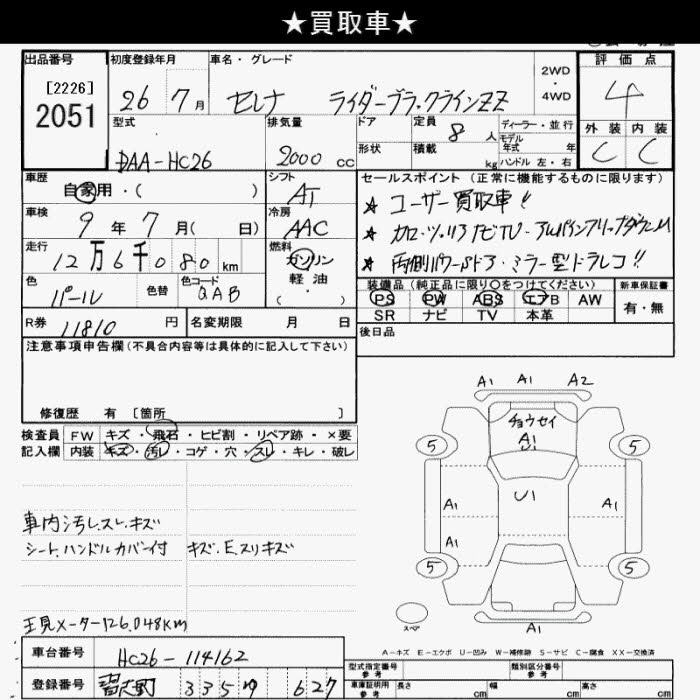 ★買取車★
出品番号
[2226]
2051
初度登録年月
26年7月
車名・グレード
セレナ ライダーブラックラインZZ
2WD
・
4WD
評価点
4
型式
DAA-HC26
排気量
2000cc
ドア
形状
定員
8人
積載
kg
ディーラー・並行
モデル
年式 年
ハンドル 左・右
外装
C
内装
C
車歴
自家用・( )
シフト
AT
セールスポイント(正常に機能するものに限ります)
★ユーザー買取車!!
車検
9年7月( 日)
冷房
AAC
走行
12万6千080km
燃料
ガソリン
軽油
( ・ )
★両側パワースドア・ミラー型ドラレコ!!
色
パール
色替
色コード
QAB
装備品(純正品に限り○をつけてください)
PS PW ABS エアB AW
SR ナビ TV 本革
新車保証書
有・無
R券
11810円
名変期限 月 日
後日品
注意事項申告欄(不具合内容等は具体的に記入して下さい)
修復歴 有 [箇所 ]
検査員
記入欄
FW キズ・飛石・ヒビ割・リペア跡・×要
内装 キズ・汚レ・コゲ・穴・スレ・キレ・破レ
車内汚レ.スレ.キズ
シート.ハンドルカバー付 キズ.E.スリキズ
現メーター126,048km
A1 A1 A2
チョウセイ
A1
5 5
U1
A1 A1
A1
5 5
スペア
A1
A-キズ E-エクボ U-凹み W-補修跡 S-サビ C-腐食 XX-交換済
車台番号
HC26-114162
登録番号
習志野 335 627
型式指定番号
参考
類別区分番号
参考
車庫証明用
参考
長さ cm
幅 cm
高さ cm